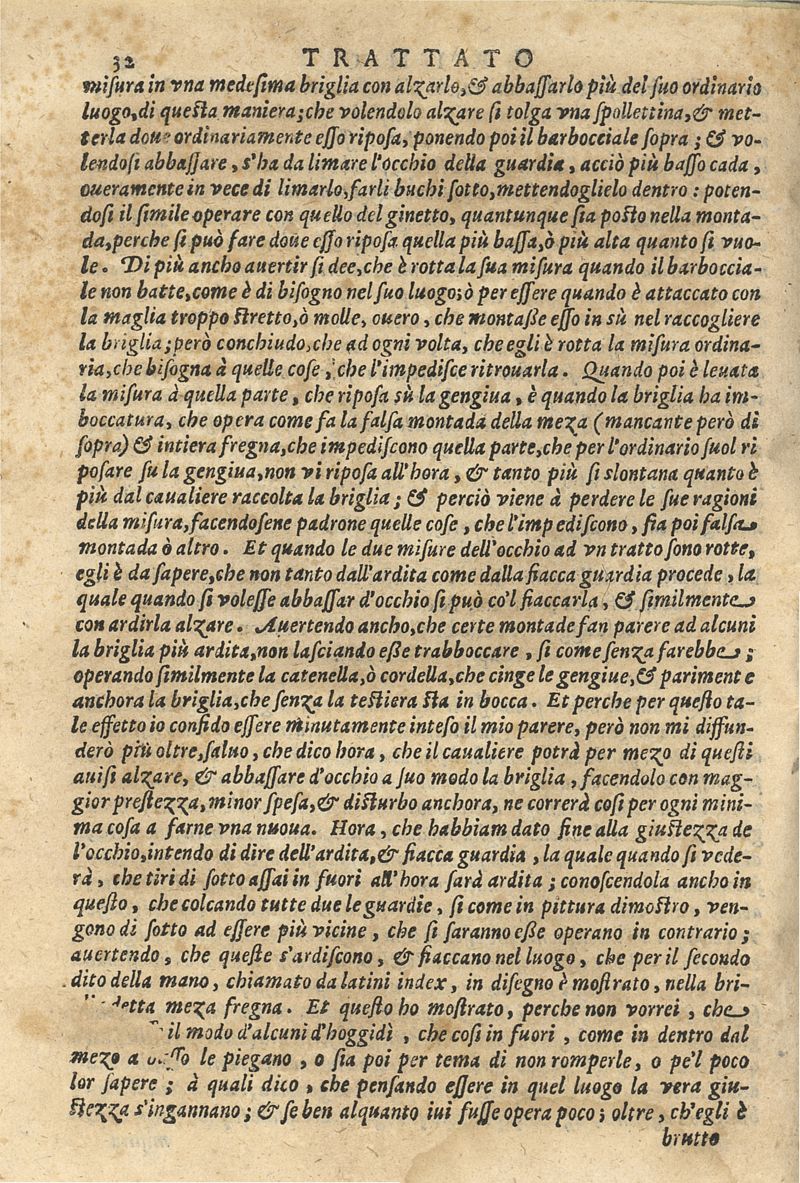 32 TRATTATO
misura in vna medesima briglia con alzarlo, & abbassarlo più del suo ordinario
luogo, di questa maniera; che volendolo alzare si tolga vna spollettina, & met-
terla doue ordinariamente esso riposa, ponendo poi il barbocciale sopra; & vo-
lendosi abbassare, s'ha da limare l'occhio della guardia, acciò più basso cada,
oueramente in vece di limarlo, farli buchi sotto, mettendoglielo dentro: poten-
dosi il simile operare con quello del ginetto, quantunque sia posto nella monta-
da, perche si può fare doue esso riposa quella più bassa, ò più alta quanto si vuo-
le. Di più ancho auertir si dee, che è rotta la sua misura quando il barboccia-
le non batte, come è di bisogno nel suo luogo; ò per essere quando è attaccato con
la maglia troppo stretto, ò molle, ouero, che montaße esso in sù nel raccogliere
la briglia; però conchiudo, che ad ogni volta, che egli è rotta la misura ordina-
ria, che bisogna à quelle cose, che l'impedisce ritrouarla. Quando poi è leuata
la misura à quella parte, che riposa sù la gengiua, è quando la briglia ha im-
boccatura, che opera come fa la falsa montada della meza (mancante però di
sopra) & intiera fregna, che impediscono quella parte, che per l'ordinario suol ri
posare su la gengiua, non vi riposa all'hora, & tanto più si slontana quanto è
più dal caualiere raccolta la briglia; & perciò viene à perdere le sue ragioni
della misura, facendosene padrone quelle cose, che l'impediscono, sia poi falsa
montada ò altro. Et quando le due misure dell'occhio ad vn tratto sono rotte,
egli è da sapere, che non tanto dall'ardita come dalla fiacca guardia procede, la
quale quando si volesse abbassar d'occhio si può co'l fiaccarla, & similmente
con ardirla alzare. Auertendo ancho, che certe montade fan parere ad alcuni
la briglia più ardita, non lasciando eße trabboccare, si come senza farebbe;
operando similmente la catenella, ò cordella, che cinge le gengiue, & pariment e
anchora la briglia, che senza la testiera sta in bocca. Et perche per questo ta-
le effetto io confido essere minutamente inteso il mio parere, però non mi diffun-
derò più oltre, saluo, che dico hora, che il caualiere potrà per mezo di questi
auisi alzare, & abbassare d'occhio a suo modo la briglia, facendolo con mag-
gior prestezza, minor spesa, & disturbo anchora, ne correrà cosi per ogni mini-
ma cosa a farne vna nuoua. Hora, che habbiam dato fine alla giustezza de
l'occhio, intendo di dire dell'ardita, & fiacca guardia, la quale quando si vede-
rà, che tiri di sotto assai in fuori all'hora sarà ardita; conoscendola ancho in
questo, che colcando tutte due le guardie, si come in pittura dimostro, ven-
gono di sotto ad essere più vicine, che si saranno eße operano in contrario;
auertendo, che queste s'ardiscono, & fiaccano nel luogo, che per il secondo
dito della mano, chiamato da latini index, in disegno è mostrato, nella bri-
detta meza fregna. Et questo ho mostrato, perche non vorrei, che
il modo d'alcuni d'hoggidì, che cosi in fuori, come in dentro dal
mezo a le piegano, o sia poi per tema di non romperle, o pe'l poco
lor sapere; à quali dico, che pensando essere in quel luogo la vera giu-
stezza s'ingannano; & se ben alquanto iui fusse opera poco; oltre, ch'egli è
brutto